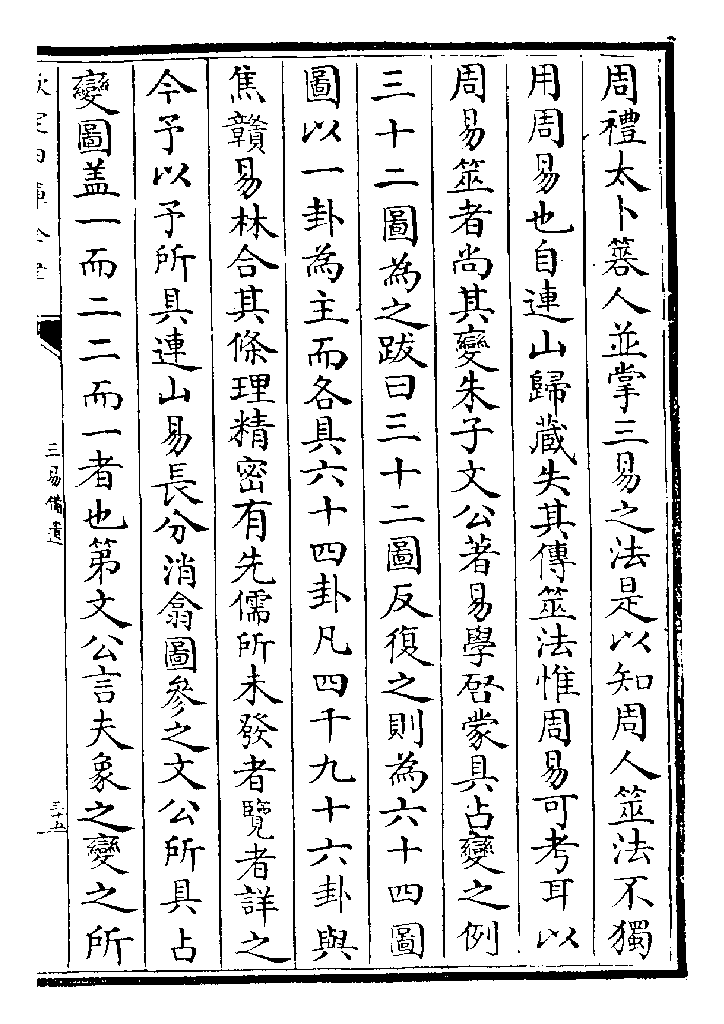 周禮太卜簭人並掌三易之法是以知周人筮法不獨
用周易也自連山歸藏失其傳筮法惟周易可考耳以
周易筮者尚其變朱子文公著易學啓蒙具占變之例
三十二圖為之跋曰三十二圖反復之則為六十四圖
圖以一卦為主而各具六十四卦凡四千九十六卦與
焦贛易林合其條理精密有先儒所未發者覽者詳之
今予以予所具連山易長分消翕圖參之文公所具占
變圖盖一而二二而一者也第文公言夫象之變之所
三易備遺
三十五